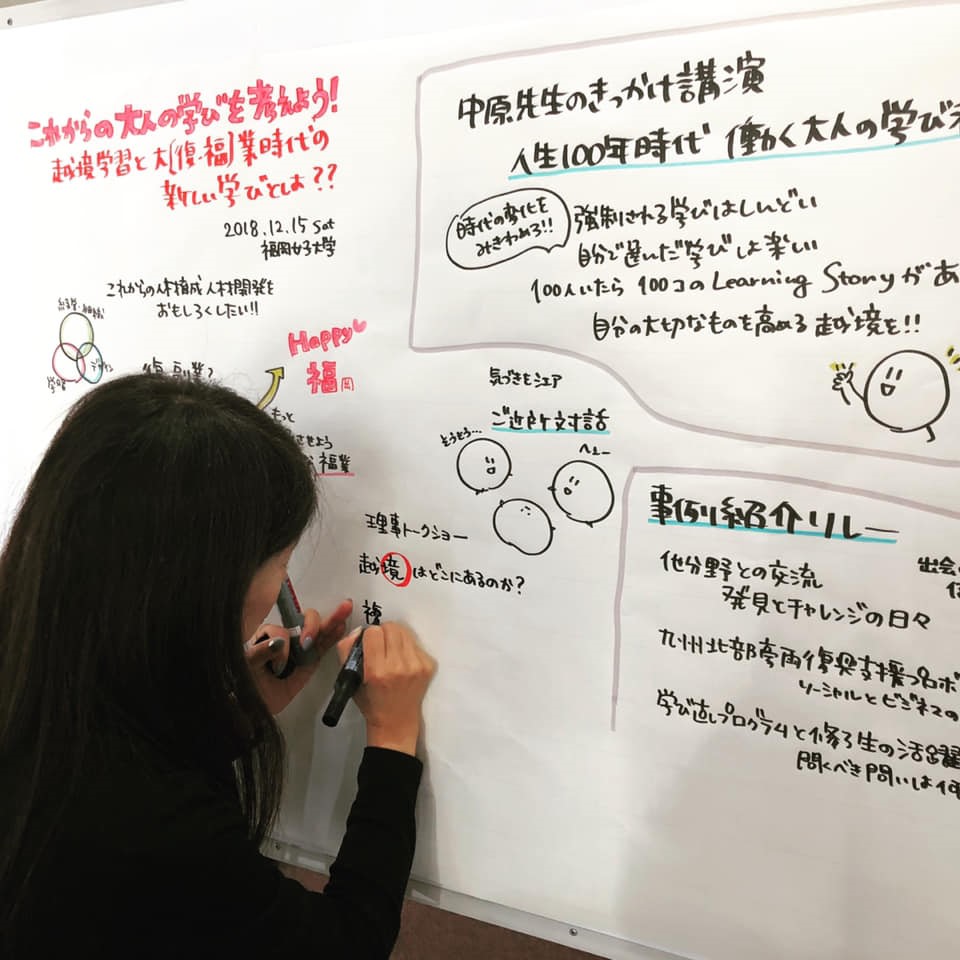 これからの大人の学びを考えよう!
越境学習と大[復・福]業時代の
新しい学びとは??
2018.12.15 Sat
福岡女子大学
これからの人材育成 人材開発を
おもしろくしたい!!
デザイン
学習
復 副業?
Happy
福岡
もっと
させよう
福業
気づきをシェア
ご近所対話
そうそう…
へぇー
理事トークショー
越境はどこにあるのか?
複
中原先生のきっかけ講演
人生100年時代 働く大人の学び
時代の変化を
みきわめろ!!
強制される学びはしんどい
自分で選んだ学びは楽しい
100人いたら 100コの Learning Story があ
自分の大切なものを高める 越境を!!
事例紹介リレー
他分野との交流
発見とチャレンジの日々
九州北部豪雨復興支援プロボ
ソーシャルとビジネスの
学び直しプログラムと修了生の活躍
問くべき問いは何
出会